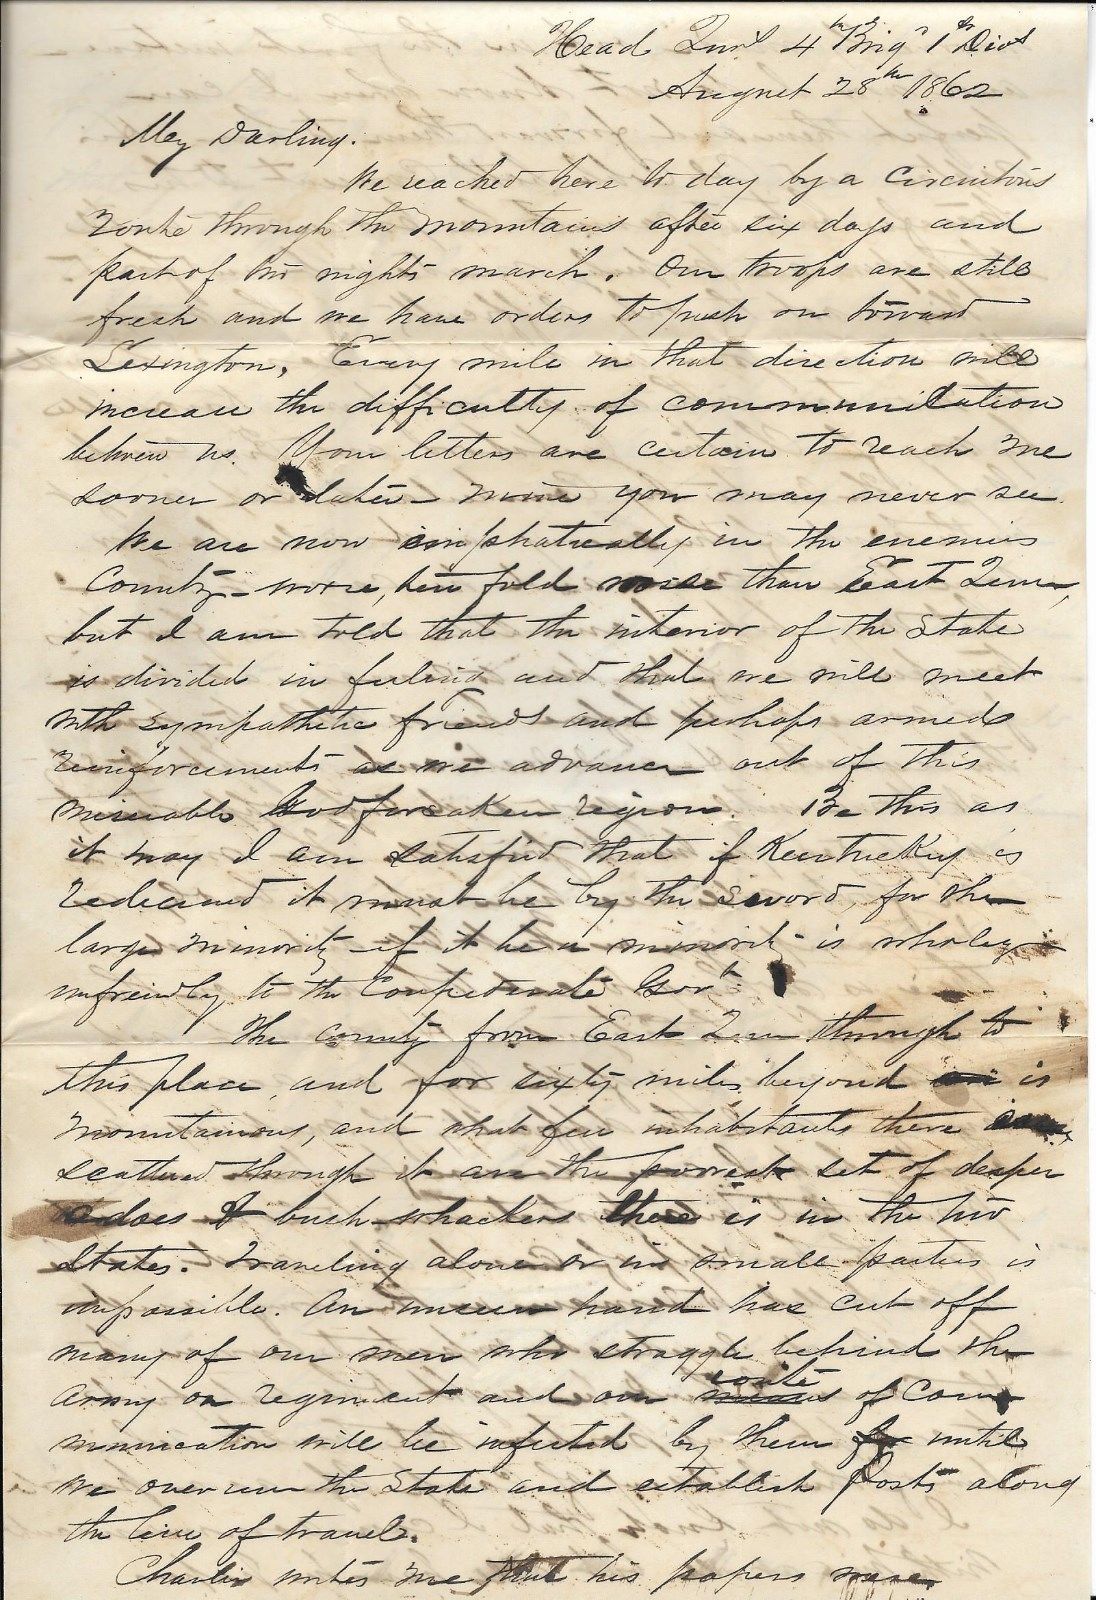 Head Qurs 4th Brig 1st Divs
August 28th 1862
My Darling.
We reached here to day by a circuitous
route through the mountains after six days and
part of two nights march. Our troops are still
fresh and we have orders to push on toward
Lexington. Every mile in that direction will
increase the difficulty of communication
between us. Your letters are certain to reach me
sooner or later - mine you may never see.
We are now emphatically in the enemies
County - more, ten fold more than East Tenn,
but I am told that the interior of the State
is divided in feeling and that we will meet
with sympathetic friends and perhaps armed
reinforcements as we advance out of this
miserable God forsaken region. Be this as
it may I am satisfied that if Kentucky is
redeemed it must be by the sword, for the
large minority - if it be a minority - is wholey
unfriendly to the Confederate Govt.
The county from East Tenn through to
this place, and for sixty miles beyond is
mountainous, and what few inhabitants there
scattered through it are the poorest set of desper
adoes & bush-whackers there is in the two
States. Traveling alone or in small parties is
impossible. An unseen hand has cut off
many of our men who straggle behind the
army or regiment and our route of Com
munication will be infested by them until
we overrun the State and establish posts along
the line of travel.
Charlie writes me that his papers were